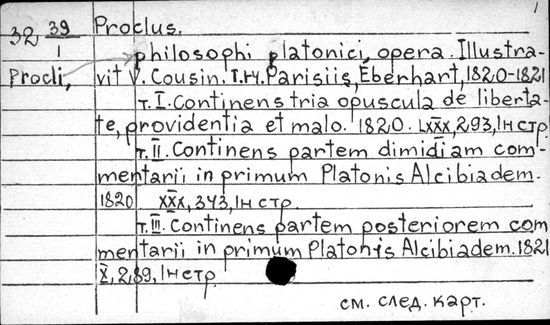 1
32 39/1 Proclus.
philosophi platonici, opera. Illustra-
Procli, vit V. Cousin. т. I-VI. Parisiis, Eberhart, 1820-1821
т. I. Continens tria opuscula de liberta-
te, providentia et malo. 1820. LXXX, 293, 1 н стр.
т. II. Continens partem dimidiam com-
mentarii in primum Platonis Alcibiadem.
1820 XXX, 343, 1 н стр.
т. III. Continens partem posteriorem com
mentarii in primum Platonis Alcibiadem. 1821
X, 289, 1 н стр.
см. след. карт.